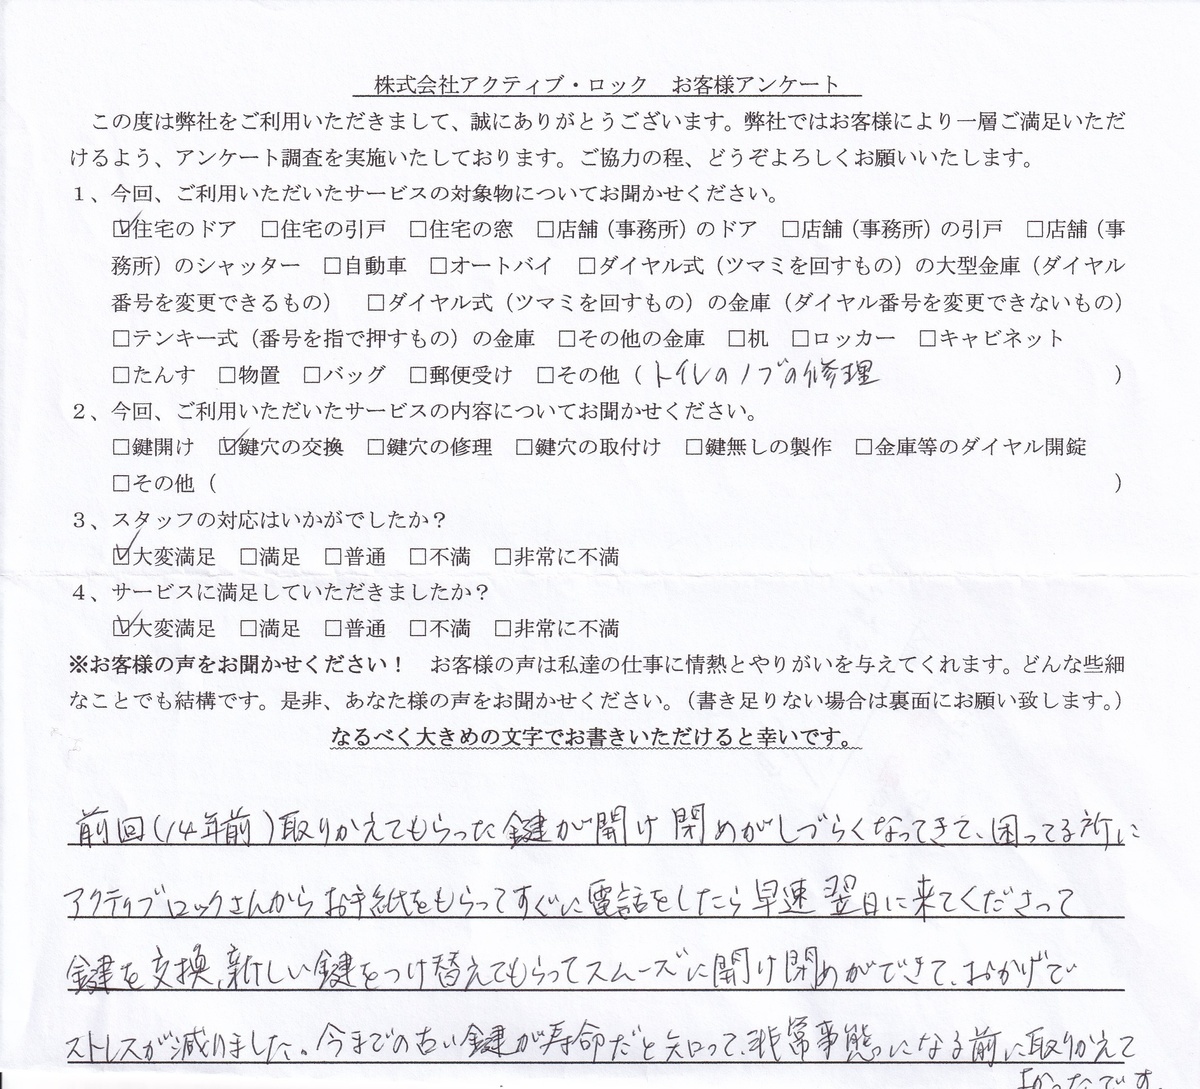 株式会社アクティブ・ロック　お客様アンケート
この度は弊社をご利用いただきまして、誠にありがとうございます。弊社ではお客様により一層ご満足いただ
けるよう、アンケート調査を実施いたしております。ご協力の程、どうぞよろしくお願いいたします。
１、今回、ご利用いただいたサービスの対象物についてお聞かせください。
☑住宅のドア　□住宅の引戸　□住宅の窓　□店舗（事務所）のドア　□店舗（事務所）の引戸　□店舗（事
務所）のシャッター　□自動車　□オートバイ　□ダイヤル式（ツマミを回すもの）の大型金庫（ダイヤル
番号を変更できるもの）　□ダイヤル式（ツマミを回すもの）の金庫（ダイヤル番号を変更できないもの）
□テンキー式（番号を指で押すもの）の金庫　□その他の金庫　□机　□ロッカー　□キャビネット
□たんす　□物置　□バッグ　□郵便受け　□その他（トイレのノブの修理　）
２、今回、ご利用いただいたサービスの内容についてお聞かせください。
□鍵開け　☑鍵穴の交換　□鍵穴の修理　□鍵穴の取付け　□鍵無しの製作　□金庫等のダイヤル開錠
□その他（　）
３、スタッフの対応はいかがでしたか？
☑大変満足　□満足　□普通　□不満　□非常に不満
４、サービスに満足していただきましたか？
☑大変満足　□満足　□普通　□不満　□非常に不満
※お客様の声をお聞かせください！　お客様の声は私達の仕事に情熱とやりがいを与えてくれます。どんな些細
なことでも結構です。是非、あなた様の声をお聞かせください。（書き足りない場合は裏面にお願い致します。）
なるべく大きめの文字でお書きいただけると幸いです。
前回(14年前)取りかえてもらった鍵が開け閉めがしづらくなってきて、困ってる所に
アクティブロックさんからお手紙をもらってすぐに電話をしたら早速翌日に来てくださって
鍵を交換、新しい鍵をつけ替えてもらってスムーズに開け閉めができて、おかげで
ストレスが減りました。今までの古い鍵が寿命だと知って、非常事態になる前に取りかえて
よかったです。